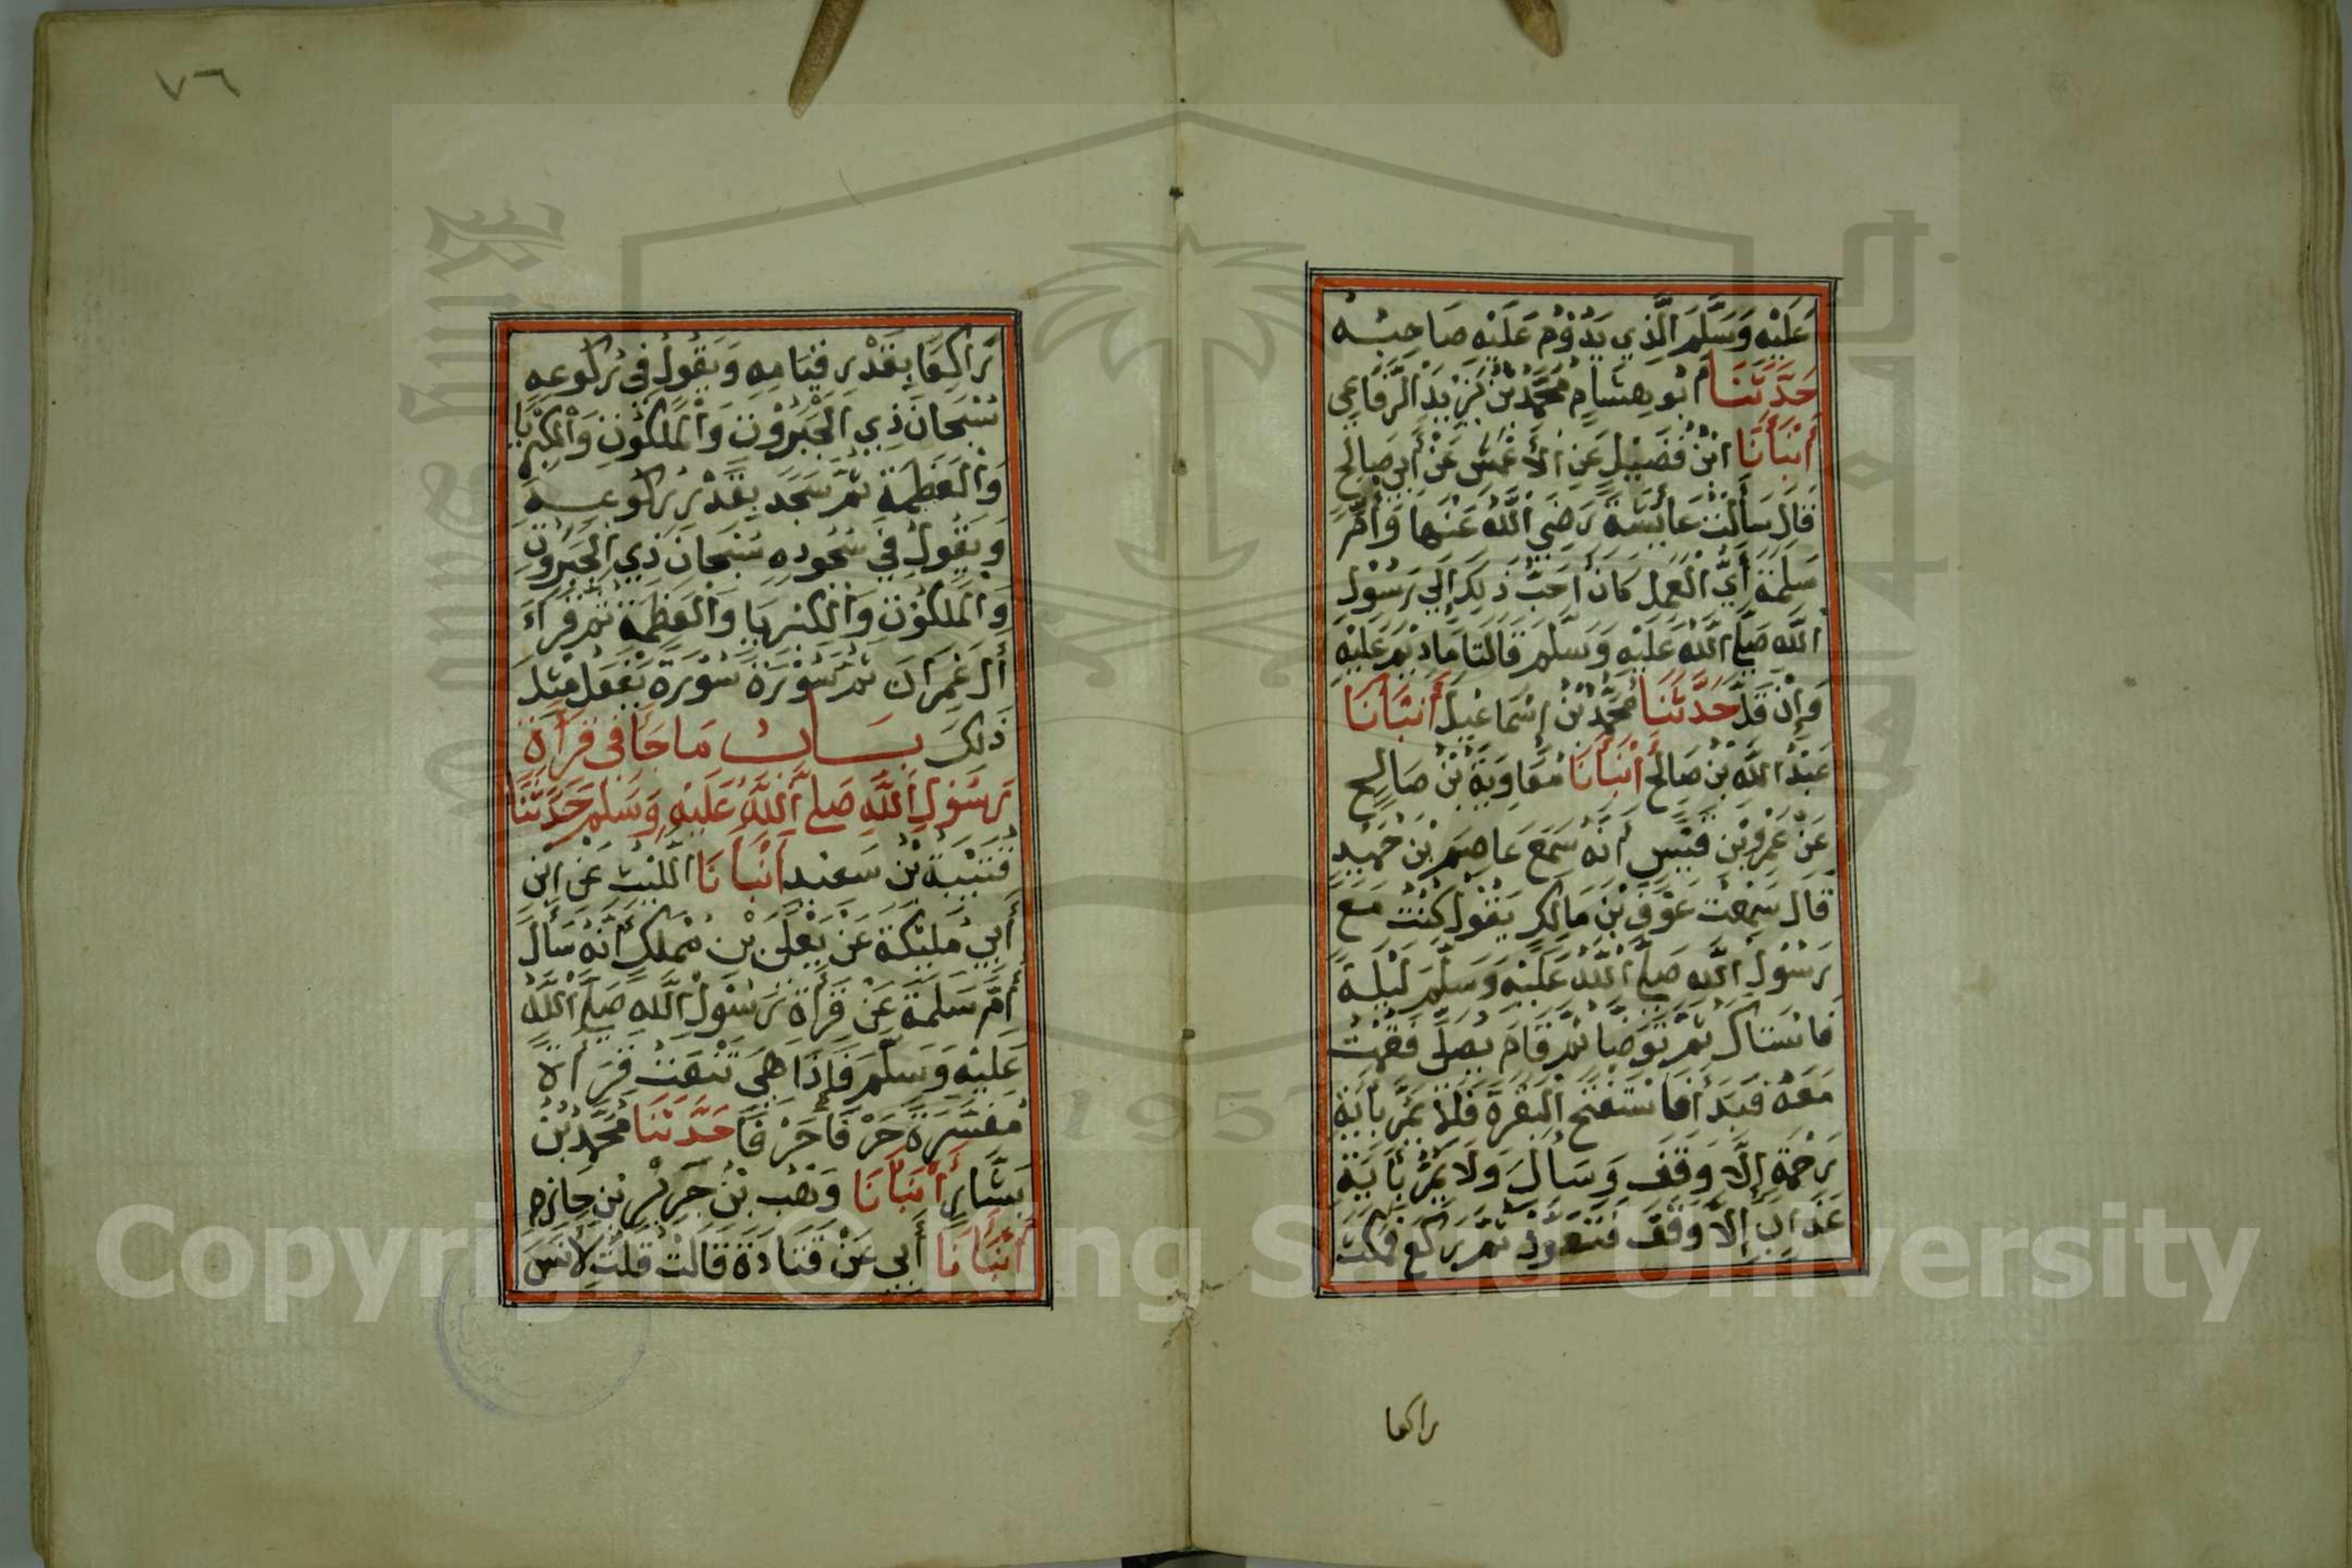 عَلَيْهِ وَسَلَّمَ الَّذِي يَدُوْمُ عَلَيْهِ صَاحِبُه
حَدَّثَنَا أبُو هِشَامٍ مُحَمَّدُ بْنُ يَزِيْدَ الرِّفَاعِي
أَنْبَأَنَا ابْنُ فُضَيْلٍ عَنِ الأَعْمَشِ عَنْ أَبِي صَالِحٍ
قَالَ سَأَلْتُ عَايِشَةَ رَضِيَ اللَّهُ عَنْهَا وَأُمَّ
سَلَمَةَ أَيُّ الْعَمَلِ كَانَ أَحَبَّ ذَلِكَ إِلَي رَسُوْلِ
اللَّهِ صَلَّي اللَّهُ عَلَيْهِ وَسَلَّمَ قَالَتَا مَا دِيْمَ عَلَيْهِ
وَإِنْ قَلَّ حَدَّثَنَا مُحَمَّدُ بْنُ إِسْمَاعِيلَ أَنْبَأَنَا
عَبْدُ اللَّهِ بْنُ صَالِحٍ أَنْبَأَنَا مُعَاوِيَةُ بْنُ صَالِحٍ
عَنْ عَمْرِو بْنِ قَيْسٍ أَنَّهُ سَمِعَ عَاصِمَ بْنَ حُمَيْدٍ
قَالَ سَمِعْتُ عَوْفَ بْنَ مَالِكٍ يَقُولُ كُنْتُ مَعَ
رَسُوْلِ اللَّهِ صَلَّي اللَّهُ عَلَيْهِ وَسَلَّمَ لَيْلَةً
فَاسْتَاكَ ثُمَّ تَوَضَّأَ ثُمَّ قَامَ يُصَلِّي فَقُمْتُ
مَعَهُ فَبَدَأَ فَاسْتَفْتَحَ الْبَقَرَةَ فَلَا يَمُرُّ بِأَيَةِ
رَحْمَةٍ إِلَّا وَقَفَ وَسَأَلَ وَلَا يَمُرُّ بِأَيَةِ
عَذَابٍ إِلَّا وَقَفَ فَتَعَوَّذَ ثُمَّ رَكَعَ فَمَكَثَ
راكعا
٧٦
رَاكِعًا بِقَدْرِ قِيَامِهِ وَيَقُوْلُ فِي رُكُوعِهِ
سُبْحَانَ ذِي الْجَبَرُوْتِ وَالْمَلَكُوْتِ وَالْكِبْرِيَا
وَالْعَظَمَةِ ثُمَّ سَجَدَ بِقَدْرِ رُكُوعِهِ
وَيَقُوْلُ فِي سُجُودِهِ سُبْحَانَ ذِي الْجَبَرُوْتِ
وَالْمَلَكُوْتِ وَالْكِبْرِيَا وَالْعَظَمَةِ ثُمَّ قَرَأَ
أٰلَ عِمْرَانَ ثُمَّ سُوْرَةً سُوْرَةً يَفْعَلُ مِثْلَ
ذَلِكَ بَابُ مَا جَا فِي قِرَأَةِ
رَسُوْلِ اللَّهِ صَلي اللَّهُ عَلَيْهِ وَسَلَّمَ حَدَّثَنَا
قُتَيْبَةُ بْنُ سَعْيدٍ أَنْبَأَنَا اللَّيْثُ عَنِ ابْنِ
أَبِي مُلَيْكَةَ عَنْ يَعْلَى بْنِ مَمْلَكٍ أَنَّهُ سَأَلَ
أُمَّ سَلَمَةَ عَنْ قِرَأَةِ رَسُوْلِ اللَّهِ صَلَّي اللَّهُ
عَلَيْهِ وَسَلَّمَ فَإِذَا هِيَ تَنْعَتُ قِرَأَةً
مُفَسَّرَةً حَرْفًا حَرْفًا حَدَّثَنَا مُحَمَّدُ بْنُ
بَشَّارٍ أَنْبَأَنَا وَهْبُ بْنُ جَرِيْرِ بْنِ حَازِمٍ
أَنْبَأَنَا أَبِي عَنْ قَتَادَةَ قَالَ قُلْتُ لِأَنَسِ
Copyright © King Saud University
1957